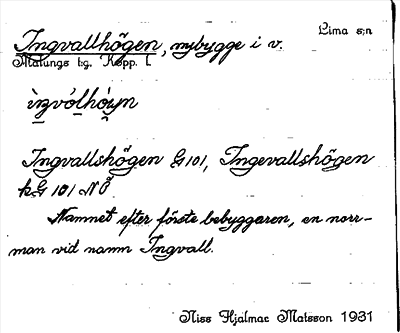 Lima s:n
Ingvallhögen, nybygge i v.
Malungs t:g. Kopp. l.
ìŋvólhóyn
Ingvallshögen G 101, Ingevallshögen
kG 101 NÖ.
Namnet efter förste bebyggaren, en norr-
man vid namn Ingvall.
Niss Hjalmar Matsson 1931